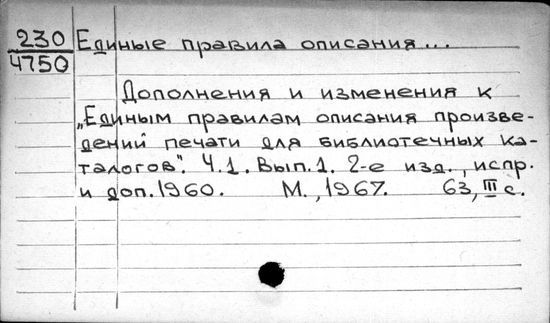 230 Единые правила описания...
4750
Дополнения и изменения к
„Единым правилам описания произве-
дений печати для библиотечных ка-
талогов". Ч.1. Вып.1. 2-е изд., испр.
и доп. 1960. М., 1967. 63, III с.